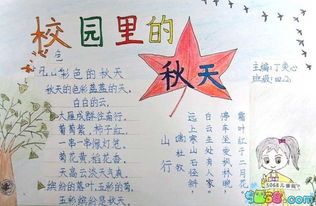 校园里的
秋天
主编:丁奕心
班级:四.2
彩色的秋天
秋天的色彩蓝蓝的天,
白白的云。
大雁成群往南行。
葡萄紫,柿子红,
一串一串像灯笼。
菊花黄,稻花香,
天高云淡天气真
缤纷的落叶,五彩的菊,
五彩缤纷是秋天。
山行
唐 杜牧
远上寒山石径斜
白云生处有人家
停车坐爱枫林晚
霜叶红于二月花
5068儿童网
5068.com